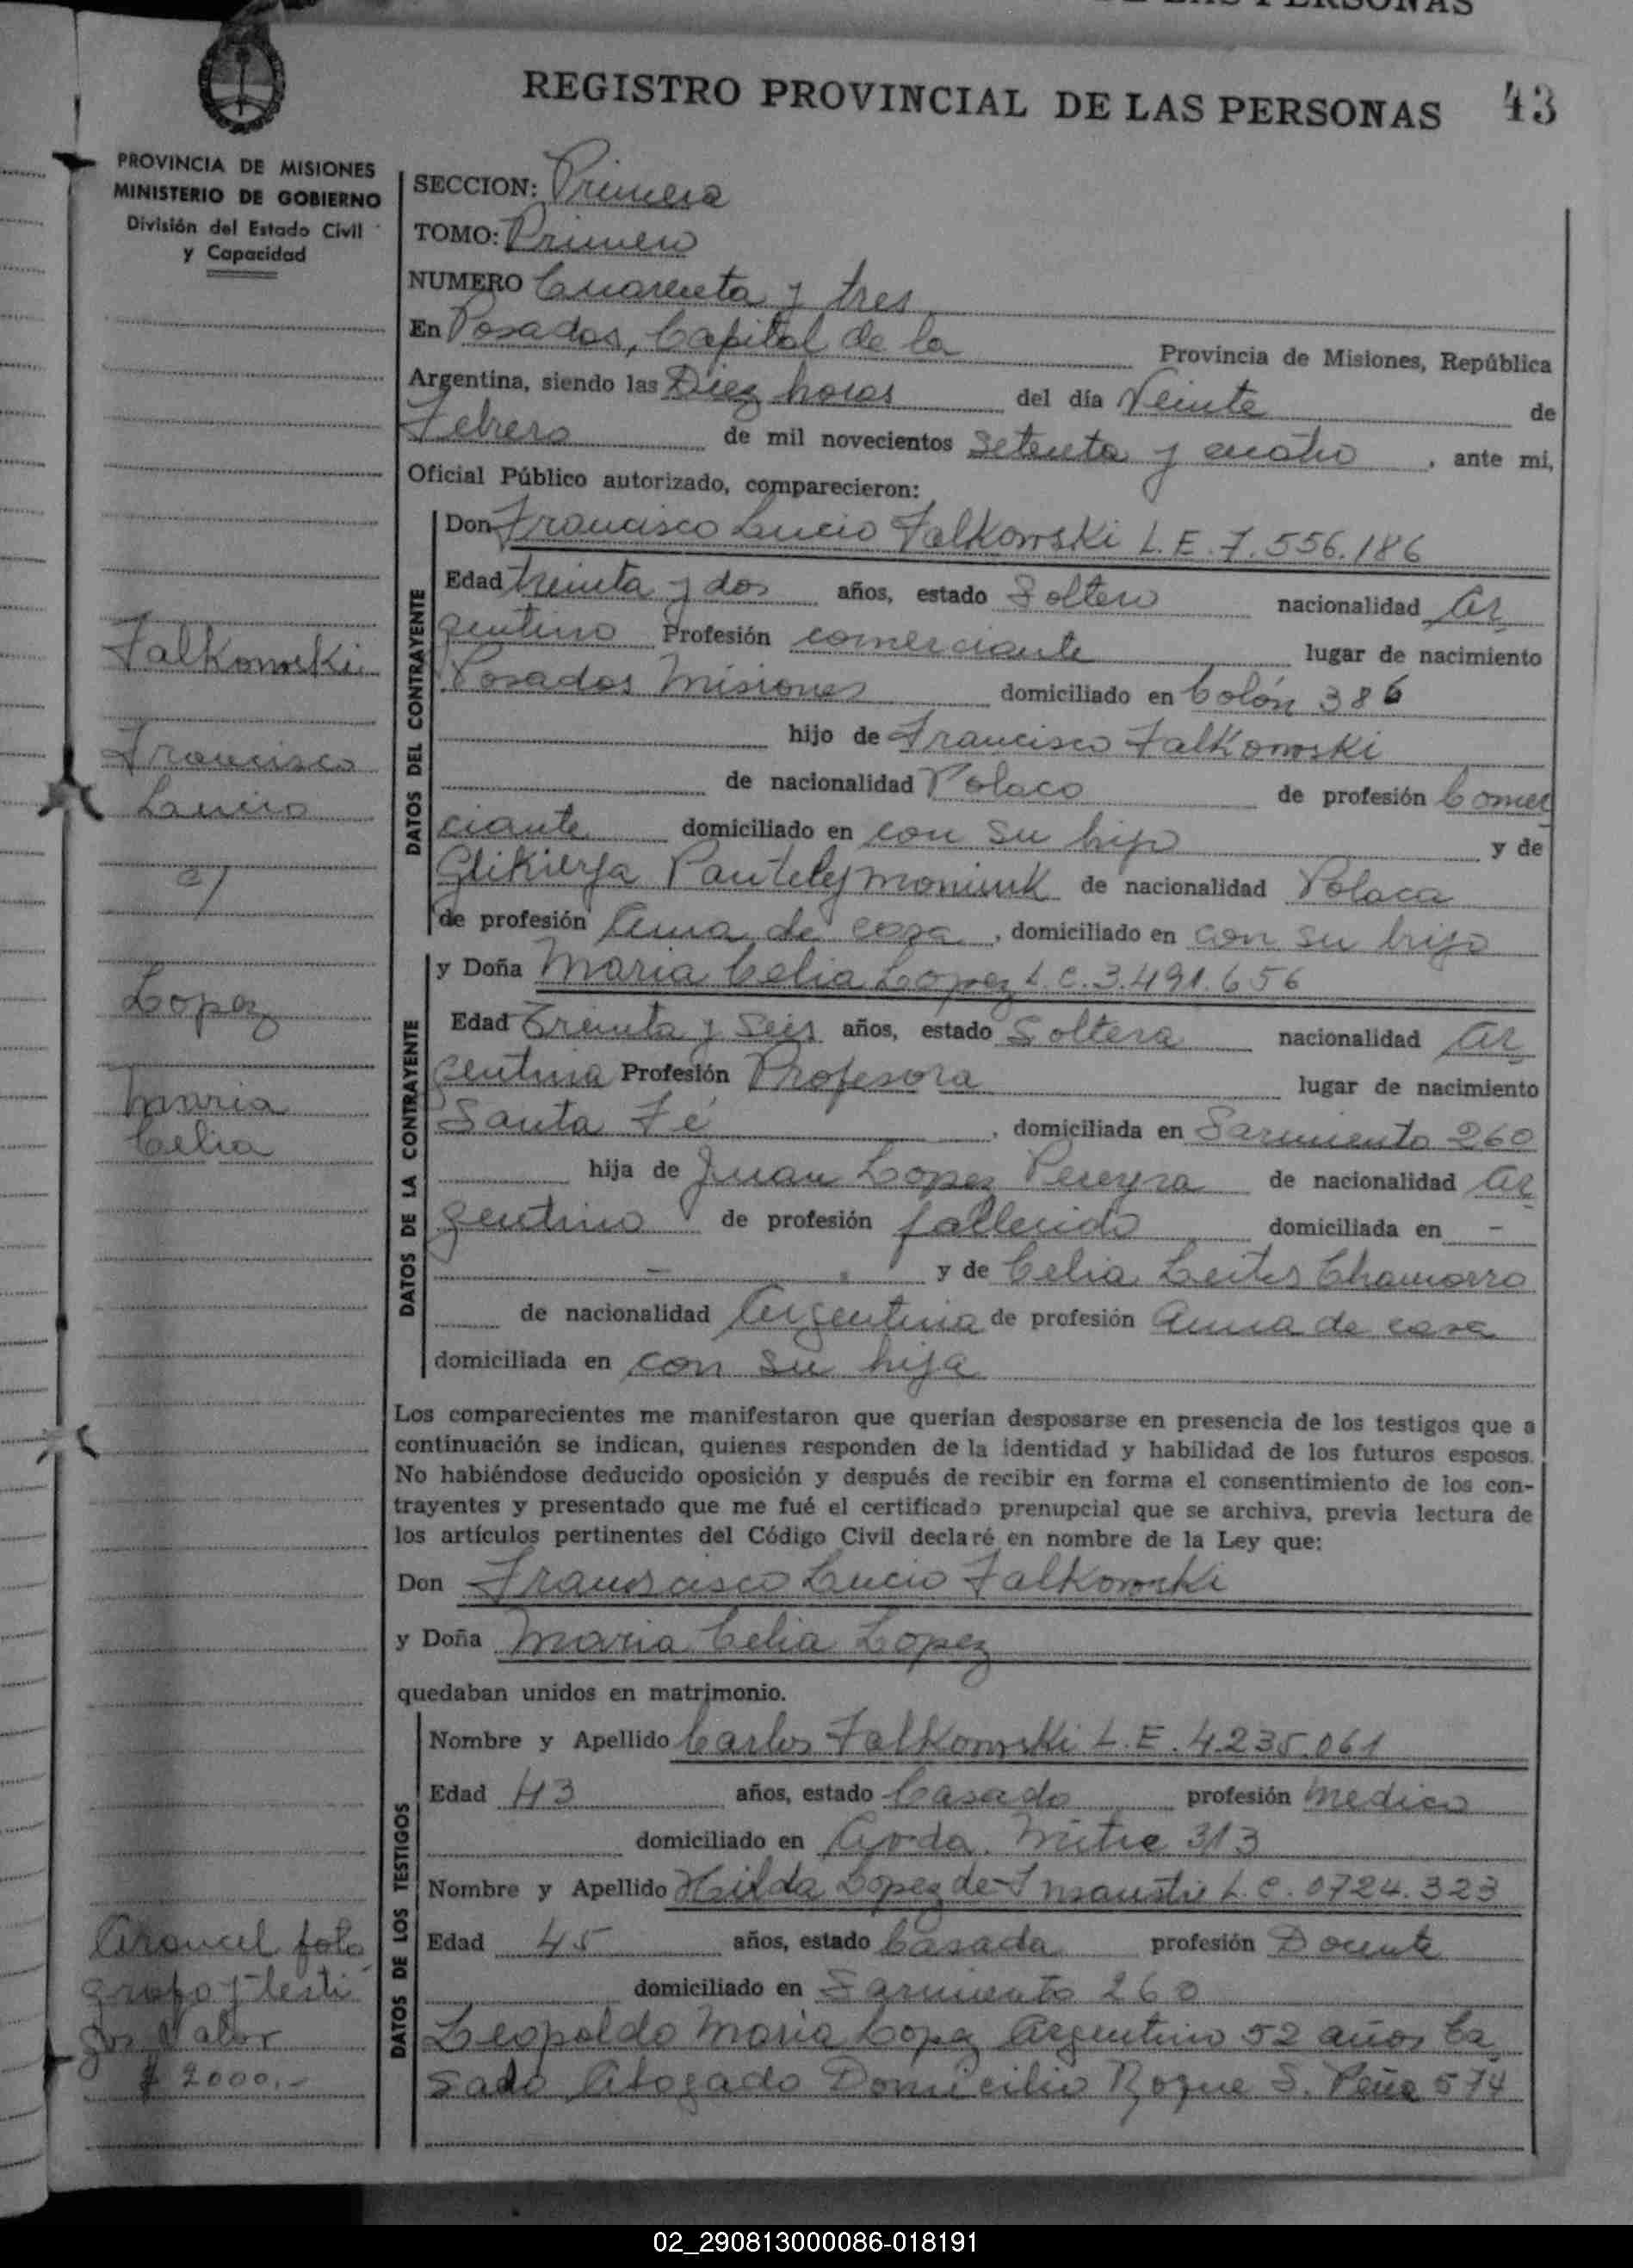 DE LAS PERSONAS
REGISTRO PROVINCIAL DE LAS PERSONAS 43
PROVINCIA DE MISIONES
MINISTERIO DE GOBIERNO
División del Estado Civil
y Capacidad
SECCION: Primera
TOMO: Primero
NUMERO Cuarenta y tres
En Posadas, Capital de la Provincia de Misiones, República
Argentina, siendo las Diez horas del día Veinte de
Febrero de mil novecientos setenta y cuatro, ante mi,
Oficial Público autorizado, comparecieron:
DATOS DEL CONTRAYENTE
Don Francisco Lucio Falkowski L. E. 7.556.186
Edad treinta y dos años, estado Soltero nacionalidad Ar
gentino Profesión comerciante lugar de nacimiento
Posadas Misiones domiciliado en Colón 386
hijo de Francisco Falkowski
de nacionalidad Polaco de profesión Comer
ciante domiciliado en con su hijo y de
Glikierja Pantelejmoniuk de nacionalidad Polaca
de profesión Ama de casa, domiciliado en con su hijo
DATOS DE LA CONTRAYENTE
y Doña Maria Celia Lopez L. C. 3.491.656
Edad Treinta y Seis años, estado Soltera nacionalidad Ar
gentina Profesión Profesora lugar de nacimiento
Santa Fé, domiciliada en Sarmiento 260
hija de Juan Lopez Pereyra de nacionalidad Ar
gentino de profesión fallecido domiciliada en -
- y de Celia Leites Chamorro
de nacionalidad Argentina de profesión Ama de casa
domiciliada en con su hija
Los comparecientes me manifestaron que querían desposarse en presencia de los testigos que a
continuación se indican, quienes responden de la identidad y habilidad de los futuros esposos.
No habiéndose deducido oposición y después de recibir en forma el consentimiento de los con-
trayentes y presentado que me fué el certificado prenupcial que se archiva, previa lectura de
los artículos pertinentes del Código Civil declaré en nombre de la Ley que:
Don Francisco Lucio Falkowski
y Doña Maria Celia Lopez
quedaban unidos en matrimonio.
DATOS DE LOS TESTIGOS
Nombre y Apellido Carlos Falkowski L. E. 4.235.061
Edad 43 años, estado Casado profesión Medico
domiciliado en Avda. Mitre 313
Nombre y Apellido Hilda Lopez de L. C. 0724.323
Edad 45 años, estado Casada profesión Docente
domiciliado en Sarmiento 260
Leopoldo Maria Lopez Argentino 52 años Ca
sado Abogado Domicilio Roque S. Peña 574
Falkowski
Francisco
Lucio
c/
Lopez
Maria
Celia
Arancel foto
grafo y testi
gos Valor
$ 2000.-
02_290813000086-018191